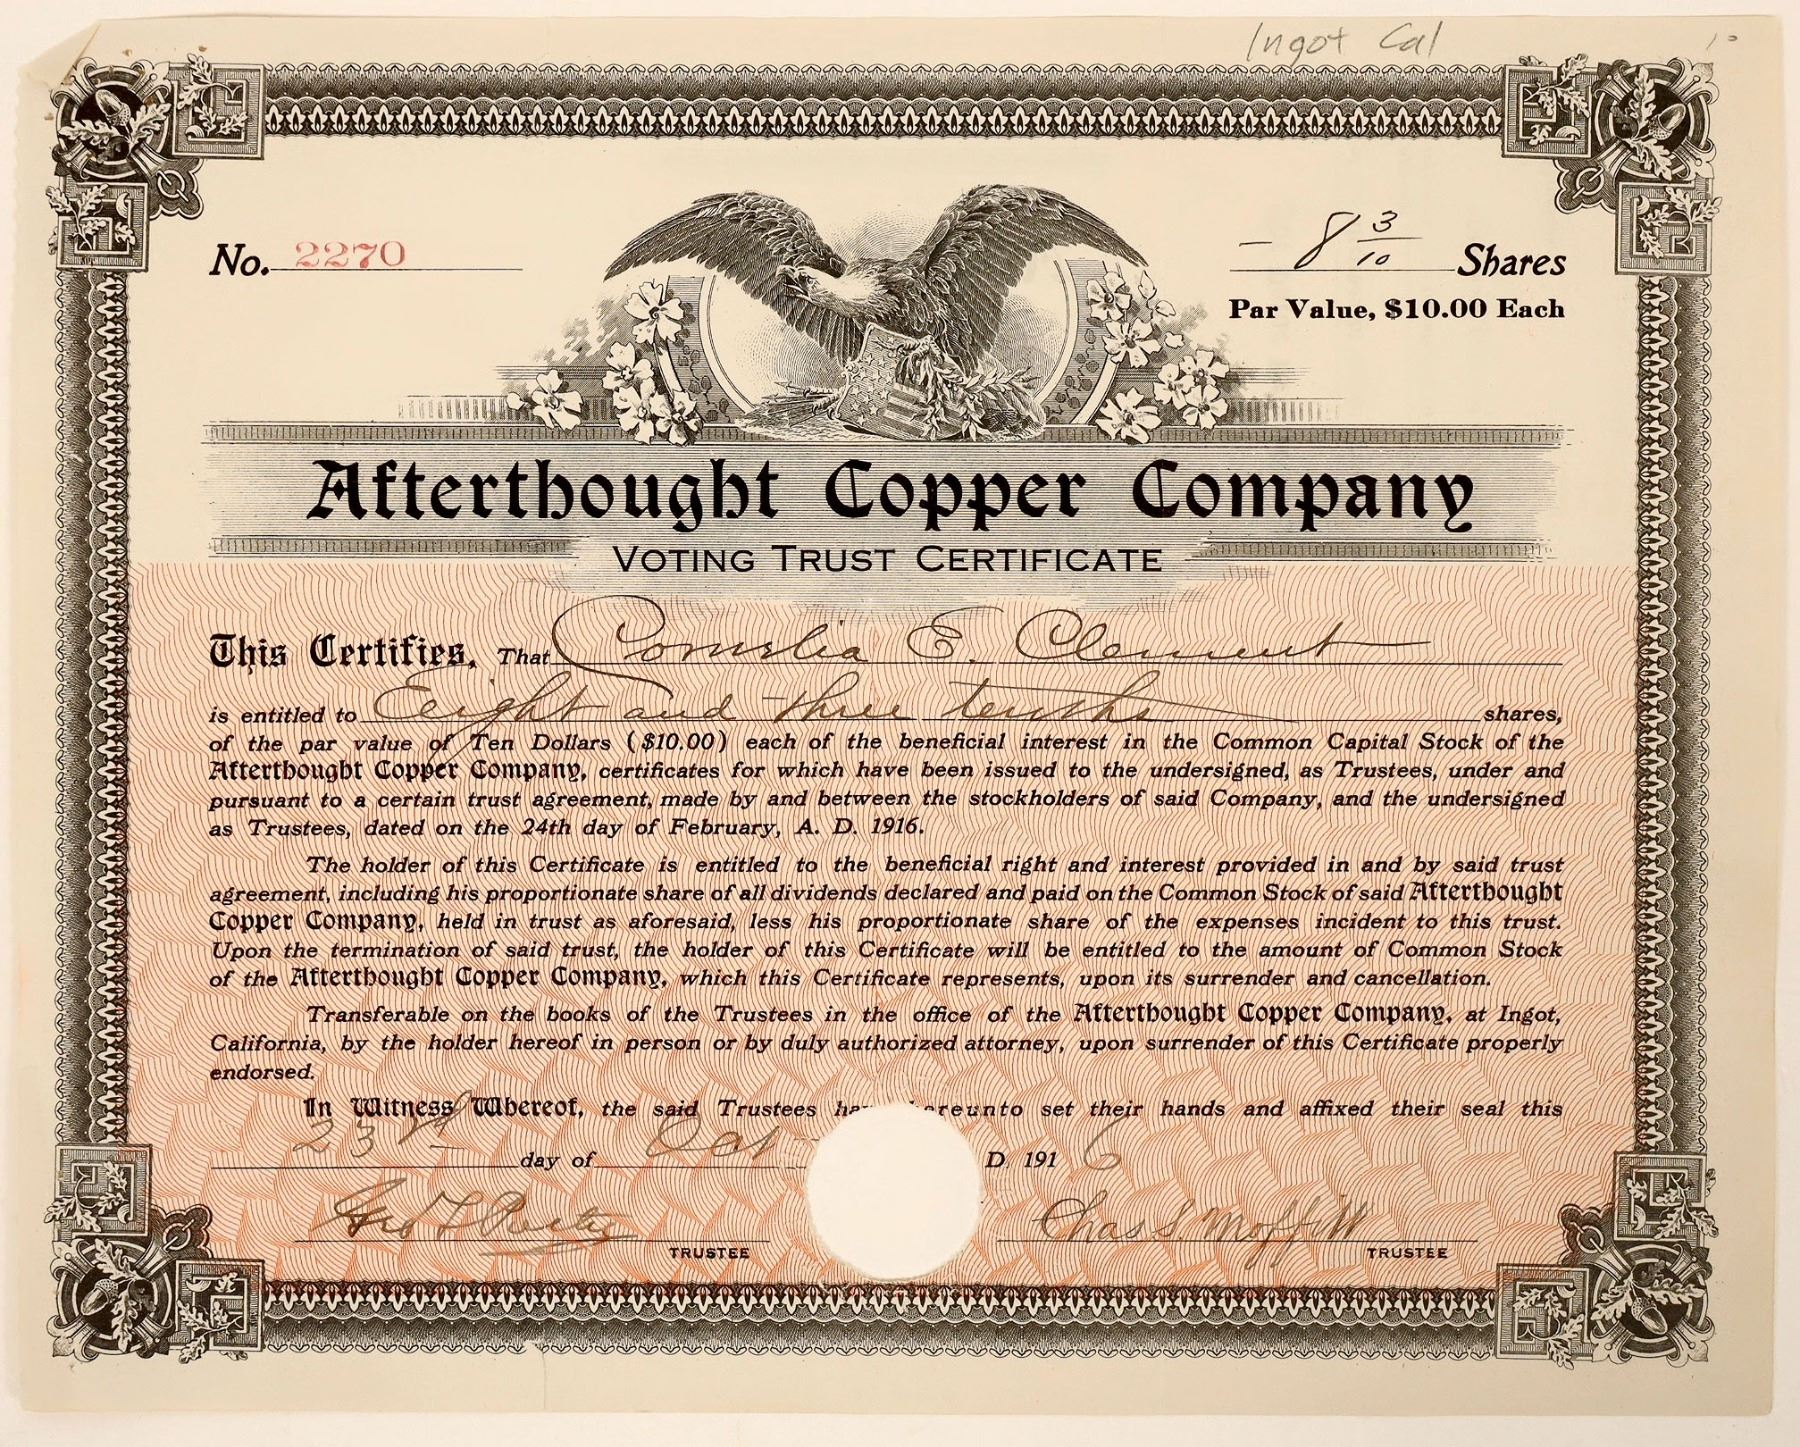 Ingot Cal
No. 2270
- 8 3/10 Shares
Par Value, $10.00 Each
Afterthought Copper Company
VOTING TRUST CERTIFICATE
This Certifies, That Cornelia E. Clement
is entitled to Eight and three tenths shares,
of the par value of Ten Dollars ($10.00) each of the beneficial interest in the Common Capital Stock of the
Afterthought Copper Company, certificates for which have been issued to the undersigned, as Trustees, under and
pursuant to a certain trust agreement, made by and between the stockholders of said Company, and the undersigned
as Trustees, dated on the 24th day of February, A. D. 1916.
The holder of this Certificate is entitled to the beneficial right and interest provided in and by said trust
agreement, including his proportionate share of all dividends declared and paid on the Common Stock of said Afterthought
Copper Company, held in trust as aforesaid, less his proportionate share of the expenses incident to this trust.
Upon the termination of said trust, the holder of this Certificate will be entitled to the amount of Common Stock
of the Afterthought Copper Company, which this Certificate represents, upon its surrender and cancellation.
Transferable on the books of the Trustees in the office of the Afterthought Copper Company, at Ingot,
California, by the holder hereof in person or by duly authorized attorney, upon surrender of this Certificate properly
endorsed.
In Witness Whereof, the said Trustees ha ereunto set their hands and affixed their seal this
23rd day of Oct D. 1916
Chas S. Moffitt
TRUSTEE TRUSTEE